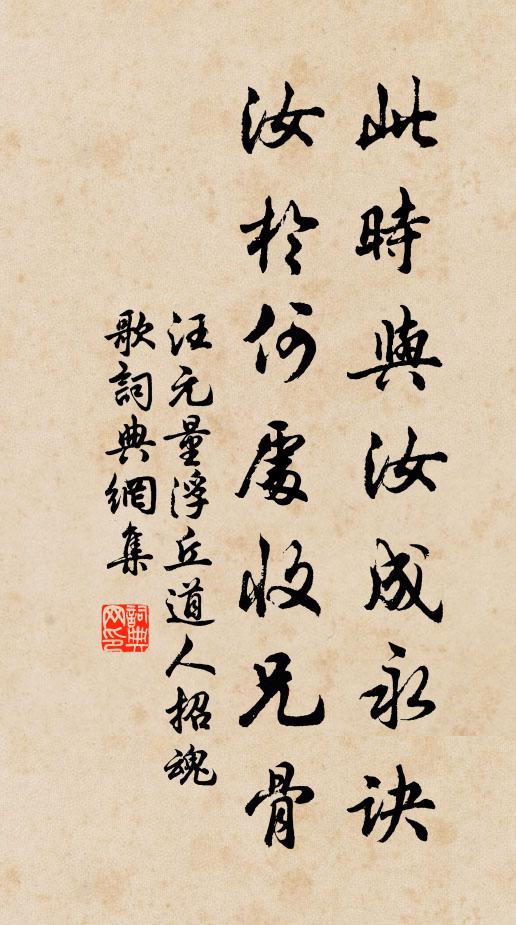 此時與汝成永訣
汝於何處收兄骨
汪元量浮丘道人招魂
歌詞典網集
詞典網印